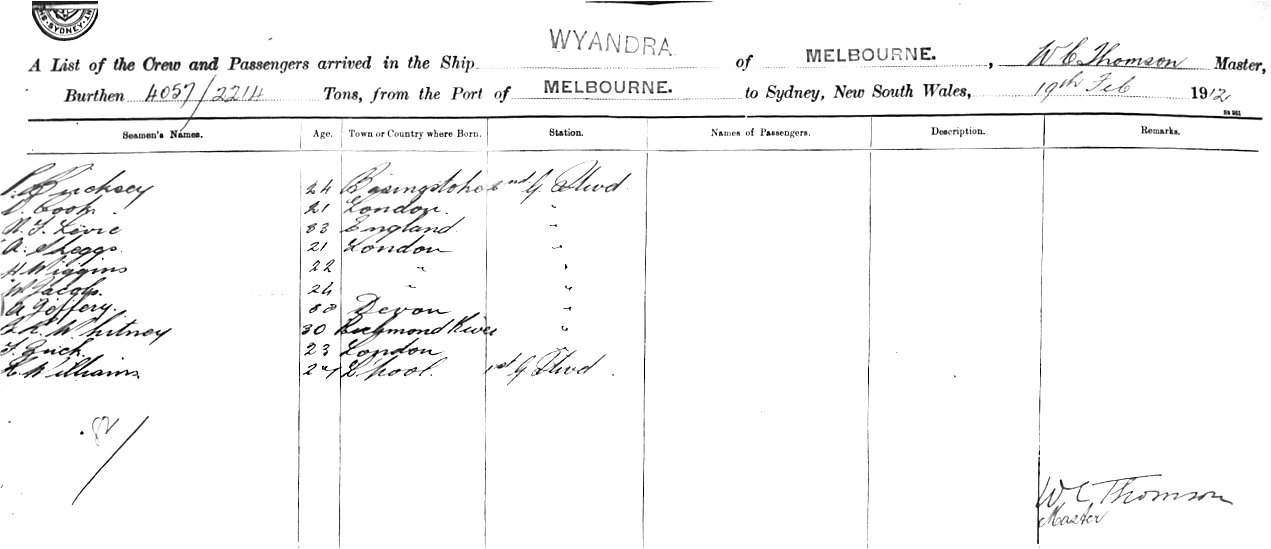 SYDNEY
A List of the Crew and Passengers arrived in the Ship WYANDRA of MELBOURNE. , W C Thomson Master,
Burthen 4057/2214 Tons, from the Port of MELBOURNE. to Sydney, New South Wales, 19th Feb 1912
Seamen's Names. Age. Town or Country where Born. Station. Names of Passengers. Description. Remarks.
24 Basingstoke 2nd G Stwd
D. Cook. 21 London. "
33 England "
A. Skeggs. 21 London "
H Wiggins 22 " "
W Jacobs. 24 " "
A Jeffery. 38 Devon "
Whitney 30 Richmond River "
23 London
Williams 24 L'pool. 1st G Stwd.
82
W C Thomson
Master